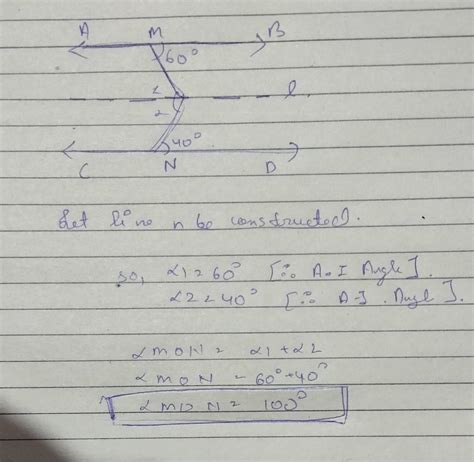 A M B
60°
1 l.
2
40°
C N D
Let line n be constructed.
so, ∠1 = 60° [∵ A.I Angle].
∠2 = 40° [∵ A.I. Angle].
∠MON = ∠1 + ∠2
∠MON = 60° + 40°
∠MON = 100°